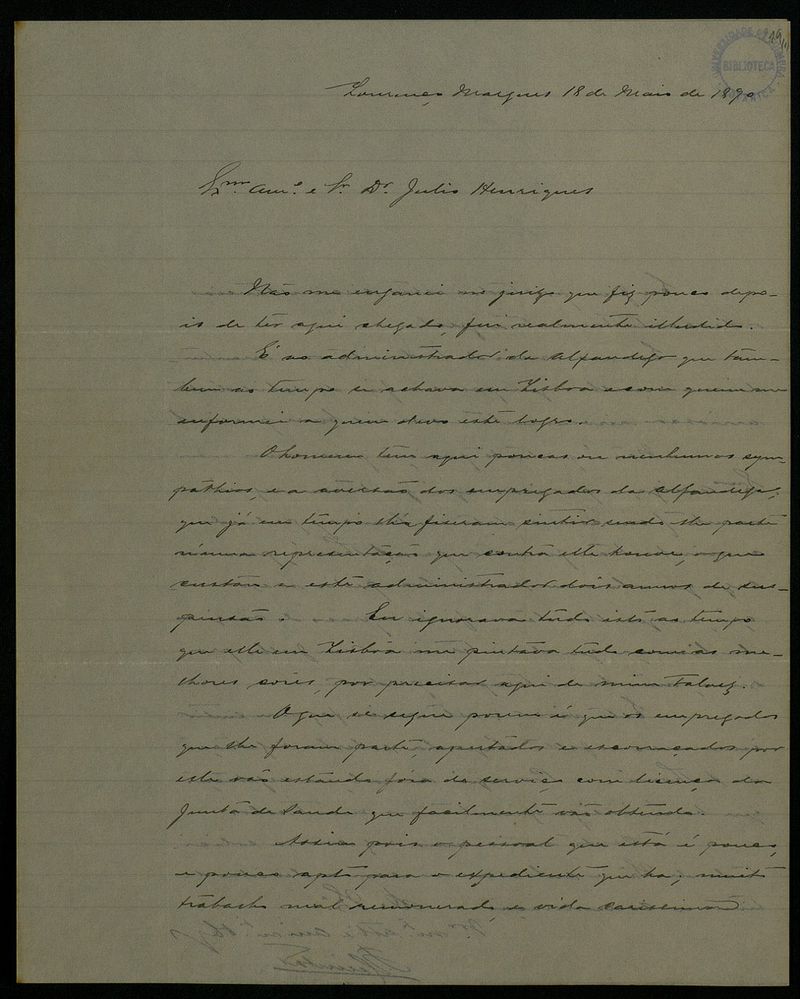 UNIVERSIDADE DE COIMBRA
BIBLIOTECA
BOTANICA
Lourenço Marques 18 de Maio de 1890
Exmo. Amo. e Sr. Dr. Julio Henriques
Não me enganei no juizo que fiz pouco depo-
is de ter aqui chegado, fui realmente illudido.
É ao administrador da Alfandega que tam-
bem ao tempo se achava em Lisboa e com quem me
informei a quem devo este logro.
O homem tem aqui poucas ou nenhumas sym-
pathias, e a aversão dos empregados da Alfandega,
que já em tempo lh'a fizeram sentir sendo lhe parte
n'uma representação que contra elle houve, o que
custou a este administrador dois annos de sus-
pensão. Eu ignorava tudo isto ao tempo
que elle em Lisboa me pintava tudo com as me-
lhores cores, por precisar aqui de mim talvez.
O que se segue porem é que os empregados
que lhe foram parte, apertados e escorraçados por
este vão estando fóra do serviço com licença da
Junta de Saude que facilmente vão obtendo.
Assim pois o pessoal que está é pouco,
e pouco apto para o expediente que ha; muito
trabalho mal remunerado e vida carissima